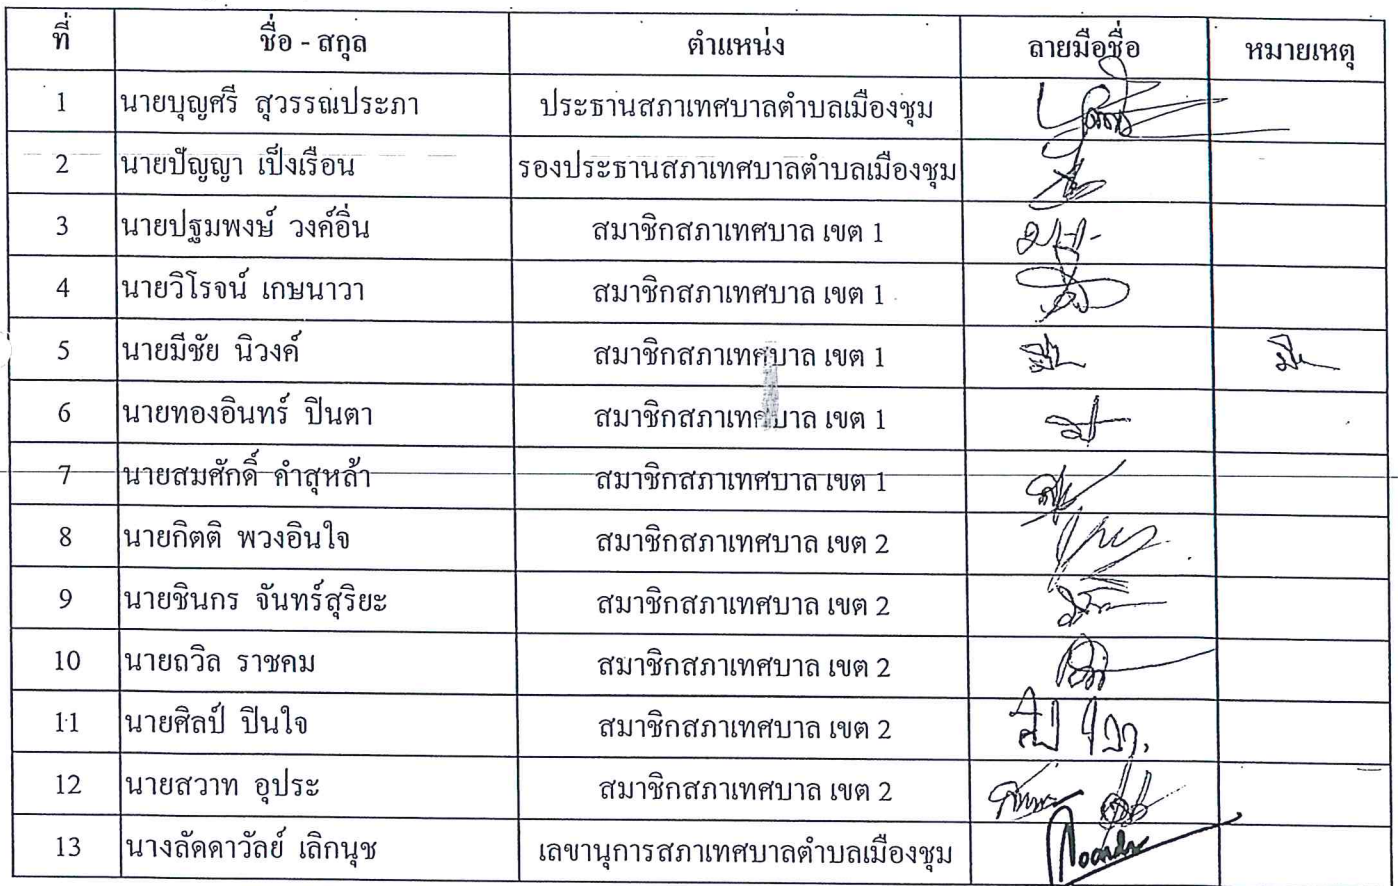 ที่ ชื่อ - สกุล ตำแหน่ง ลายมือชื่อ หมายเหตุ
1 นายบุญศรี สุวรรณประภา ประธานสภาเทศบาลตำบลเมืองชุม
2 นายปัญญา เป็งเรือน รองประธานสภาเทศบาลตำบลเมืองชุม
3 นายปฐมพงษ์ วงค์อิ่น สมาชิกสภาเทศบาล เขต 1
4 นายวิโรจน์ เกษนาวา สมาชิกสภาเทศบาล เขต 1
5 นายมีชัย นิวงค์ สมาชิกสภาเทศบาล เขต 1
6 นายทองอินทร์ ปินตา สมาชิกสภาเทศบาล เขต 1
7 นายสมศักดิ์ คำสุหล้า สมาชิกสภาเทศบาล เขต 1
8 นายกิตติ พวงอินใจ สมาชิกสภาเทศบาล เขต 2
9 นายชินกร จันทร์สุริยะ สมาชิกสภาเทศบาล เขต 2
10 นายถวิล ราชคม สมาชิกสภาเทศบาล เขต 2
11 นายศิลป์ ปินใจ สมาชิกสภาเทศบาล เขต 2
12 นายสวาท อุประ สมาชิกสภาเทศบาล เขต 2
13 นางลัดดาวัลย์ เลิกนุช เลขานุการสภาเทศบาลตำบลเมืองชุม